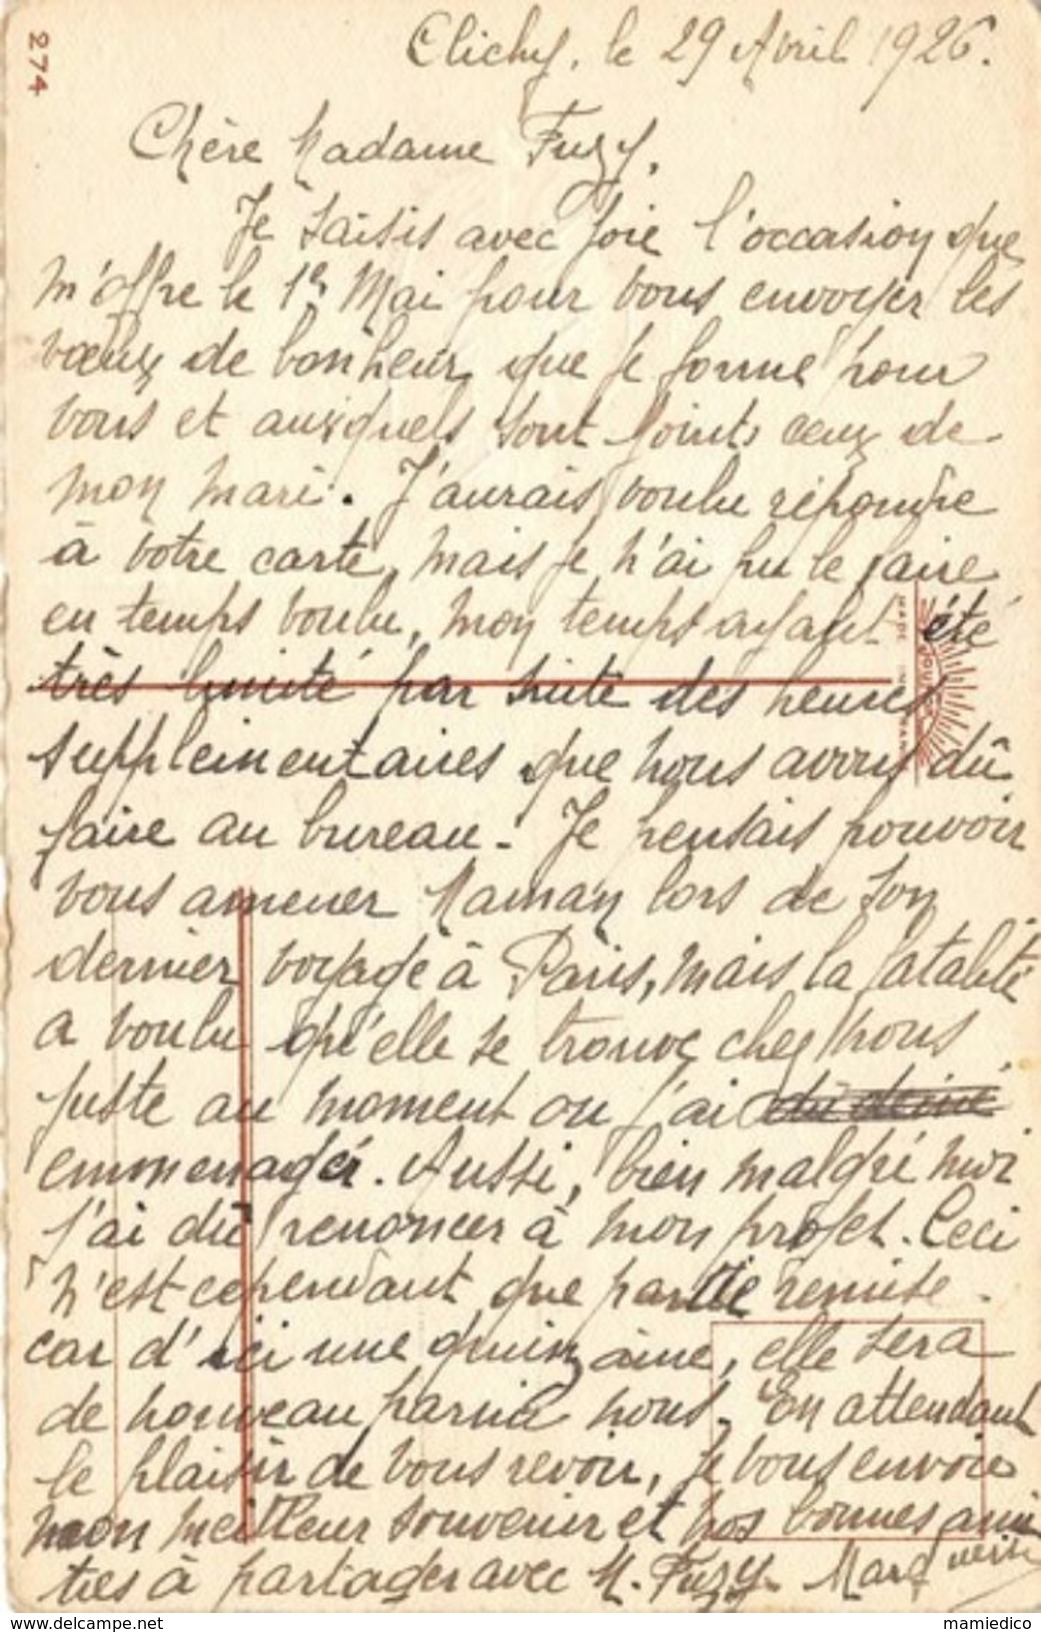 274
Clichy, le 29 Avril 1926.
Chère Madame Fuzy,
Je saisis avec joie l'occasion que
m'offre le 1er Mai pour vous envoyer les
vœux de bonheur que je forme pour
vous et auxquels sont joints ceux de
mon mari. J'aurais voulu répondre
à votre carte, mais je n'ai pu le faire
en temps voulu, mon temps ayant été
très limité par suite des heures
supplémentaires que nous avons dû
faire au bureau. Je pensais pouvoir
vous amener Maman lors de son
dernier voyage à Paris, mais la fatalité
a voulu qu'elle se trouve chez nous
juste au moment ou j'ai
emmenagér. Aussi, bien malgré moi
j'ai dû renoncer à mon projet. Ceci
n'est cependant que partie remise.
car d'ici une quinzaine, elle sera
de nouveau parmi nous. En attendant
le plaisir de vous revoir, je vous envoie
mon meilleur souvenir et nos bonnes ami
tiés à partager avec M. Fuzy. Marguerite
www.delcampe.net
mamiedico